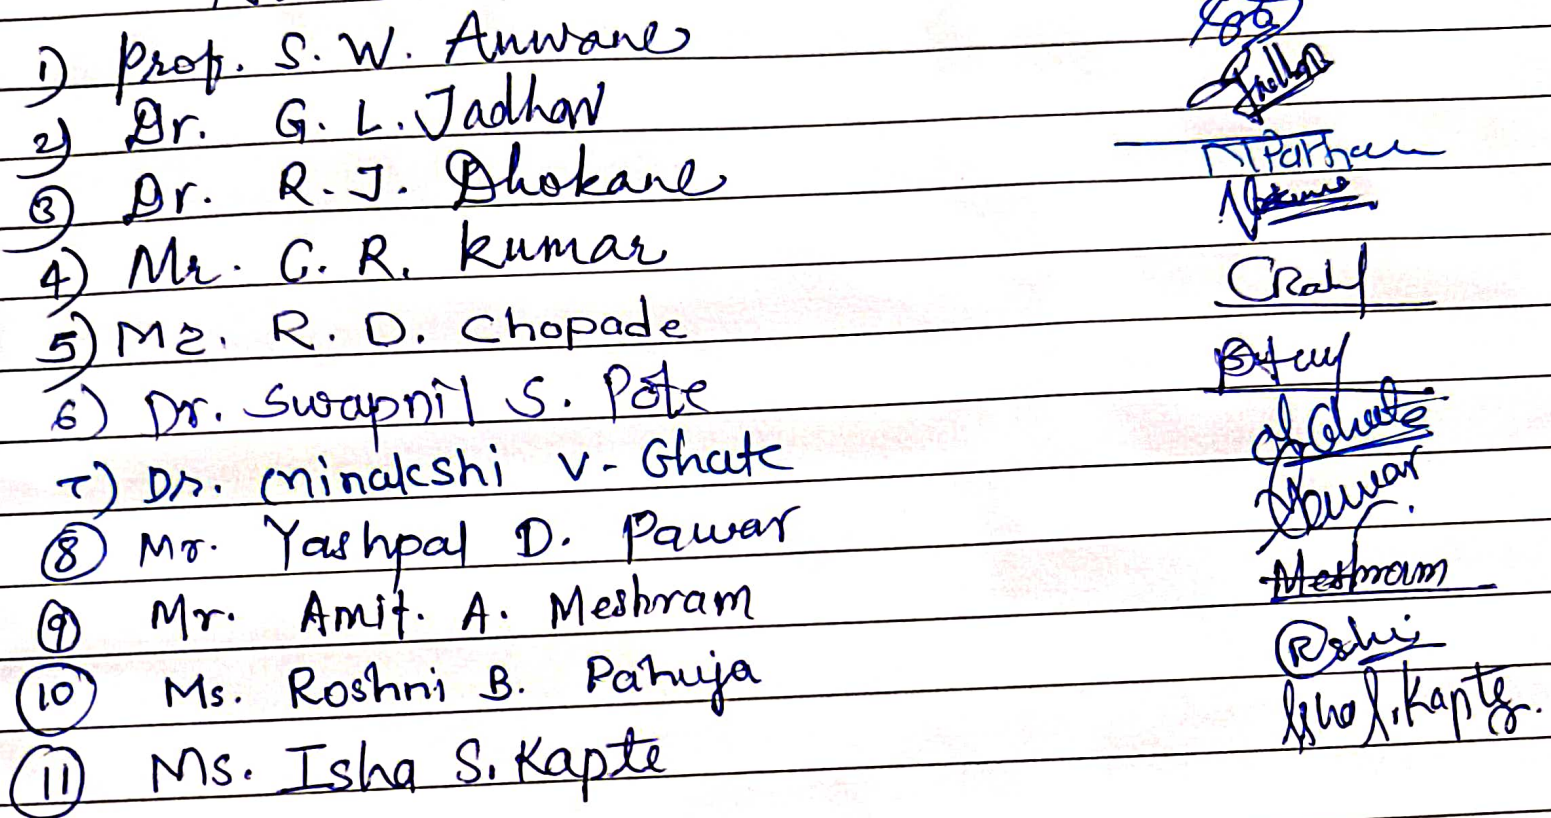 1) Prof. S. W. Anwane
2) Dr. G. L. Jadhav
3) Dr. R. J. Dhokane
4) Mr. C. R. Kumar
5) Mr. R. D. Chopade
6) Dr. Swapnil S. Pote
7) Dr. Minakshi V. Ghate S. Ghate
8) Mr. Yashpal D. Pawar
9) Mr. Amit. A. Meshram Meshram
10) Ms. Roshni B. Pahuja
11) Ms. Isha S. Kapte Isha S. Kapte.